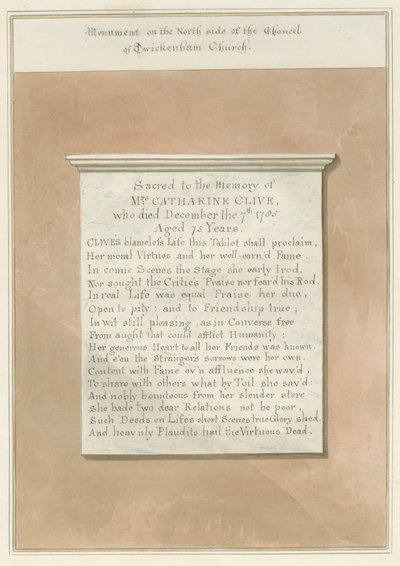 Monument on the North side of the Chancel
of Twickenham Church.
Sacred to the Memory of
Mrs. CATHARINE CLIVE,
who died December the 7th 1785
Aged 75 Years.
CLIVE'S blameless Life this Tablet shall proclaim,
Her moral Virtues and her well-earn'd Fame
In comic Scenes the Stage she early trod,
Nor sought the Critic's Praise nor fear'd his Rod.
In real Life was equal Praise her due,
Open to pity: and to Friendship true;
In Wit still pleasing, as in Converse free
From aught that could afflict Humanity:
Her generous Heart to all her Friends was known,
And e'en the Strangers sorrows were her own.
Content with Fame ev'n affluence she wav'd,
To share with others what by Toil she sav'd:
And nobly bounteous from her slender store
She bade two dear Relations not be poor,
Such Deeds on Life's short Scenes true Glory shed,
And heav'nly Plaudits hail the Virtuous Dead.